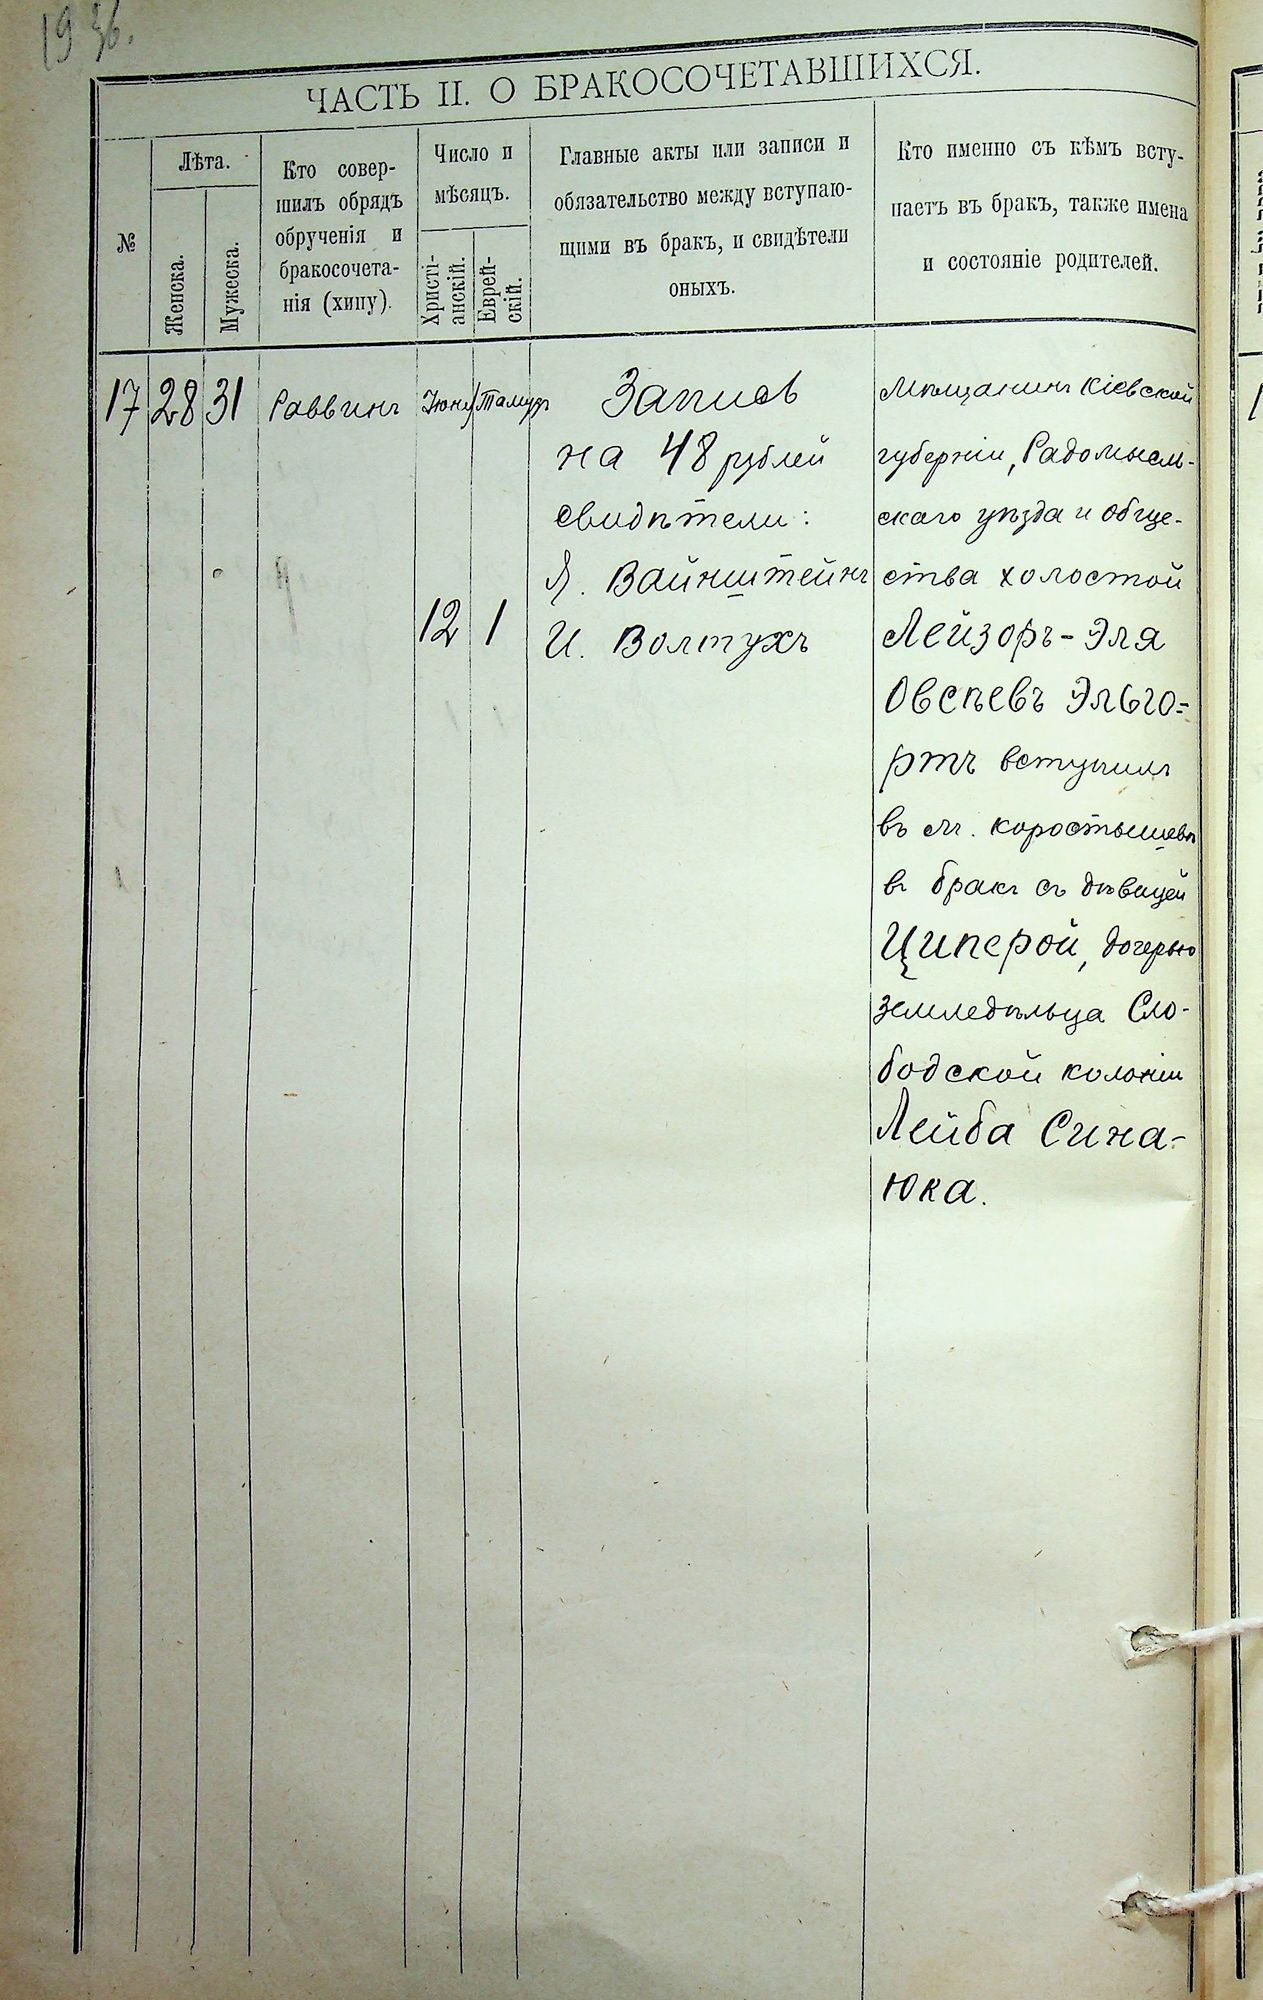 19 36.
ЧАСТЬ II. О БРАКОСОЧЕТАВШИХСЯ.
№
Лѣта.
Женска.
Мужеска.
Кто совер-
шилъ обрядъ
обрученія и
бракосочета-
нія (хипу).
Число и
мѣсяцъ.
Христі-
анскій.
Еврей-
скій.
Главные акты или записи и
обязательство между вступаю-
щими въ бракъ, и свидѣтели
оныхъ.
Кто именно съ кѣмъ всту-
паетъ въ бракъ, также имена
и состояніе родителей.
17
28
31
Раввинъ
Іюня
Тамузъ
12
1
Запись
на 48 рублей
свидѣтели:
Я. Вайнштейнъ
И. Волтухъ
Мѣщанинъ Кіевской
губерніи, Радомысль-
скаго уѣзда и обще-
ства холостой
Лейзоръ-Эля
Овсѣевъ Эльго-
ртъ вступилъ
въ м. Коростышевѣ
въ бракъ съ дѣвицей
Циперой, дочерью
земледѣльца Сло-
бодской колоніи
Лейба Сина-
юка.